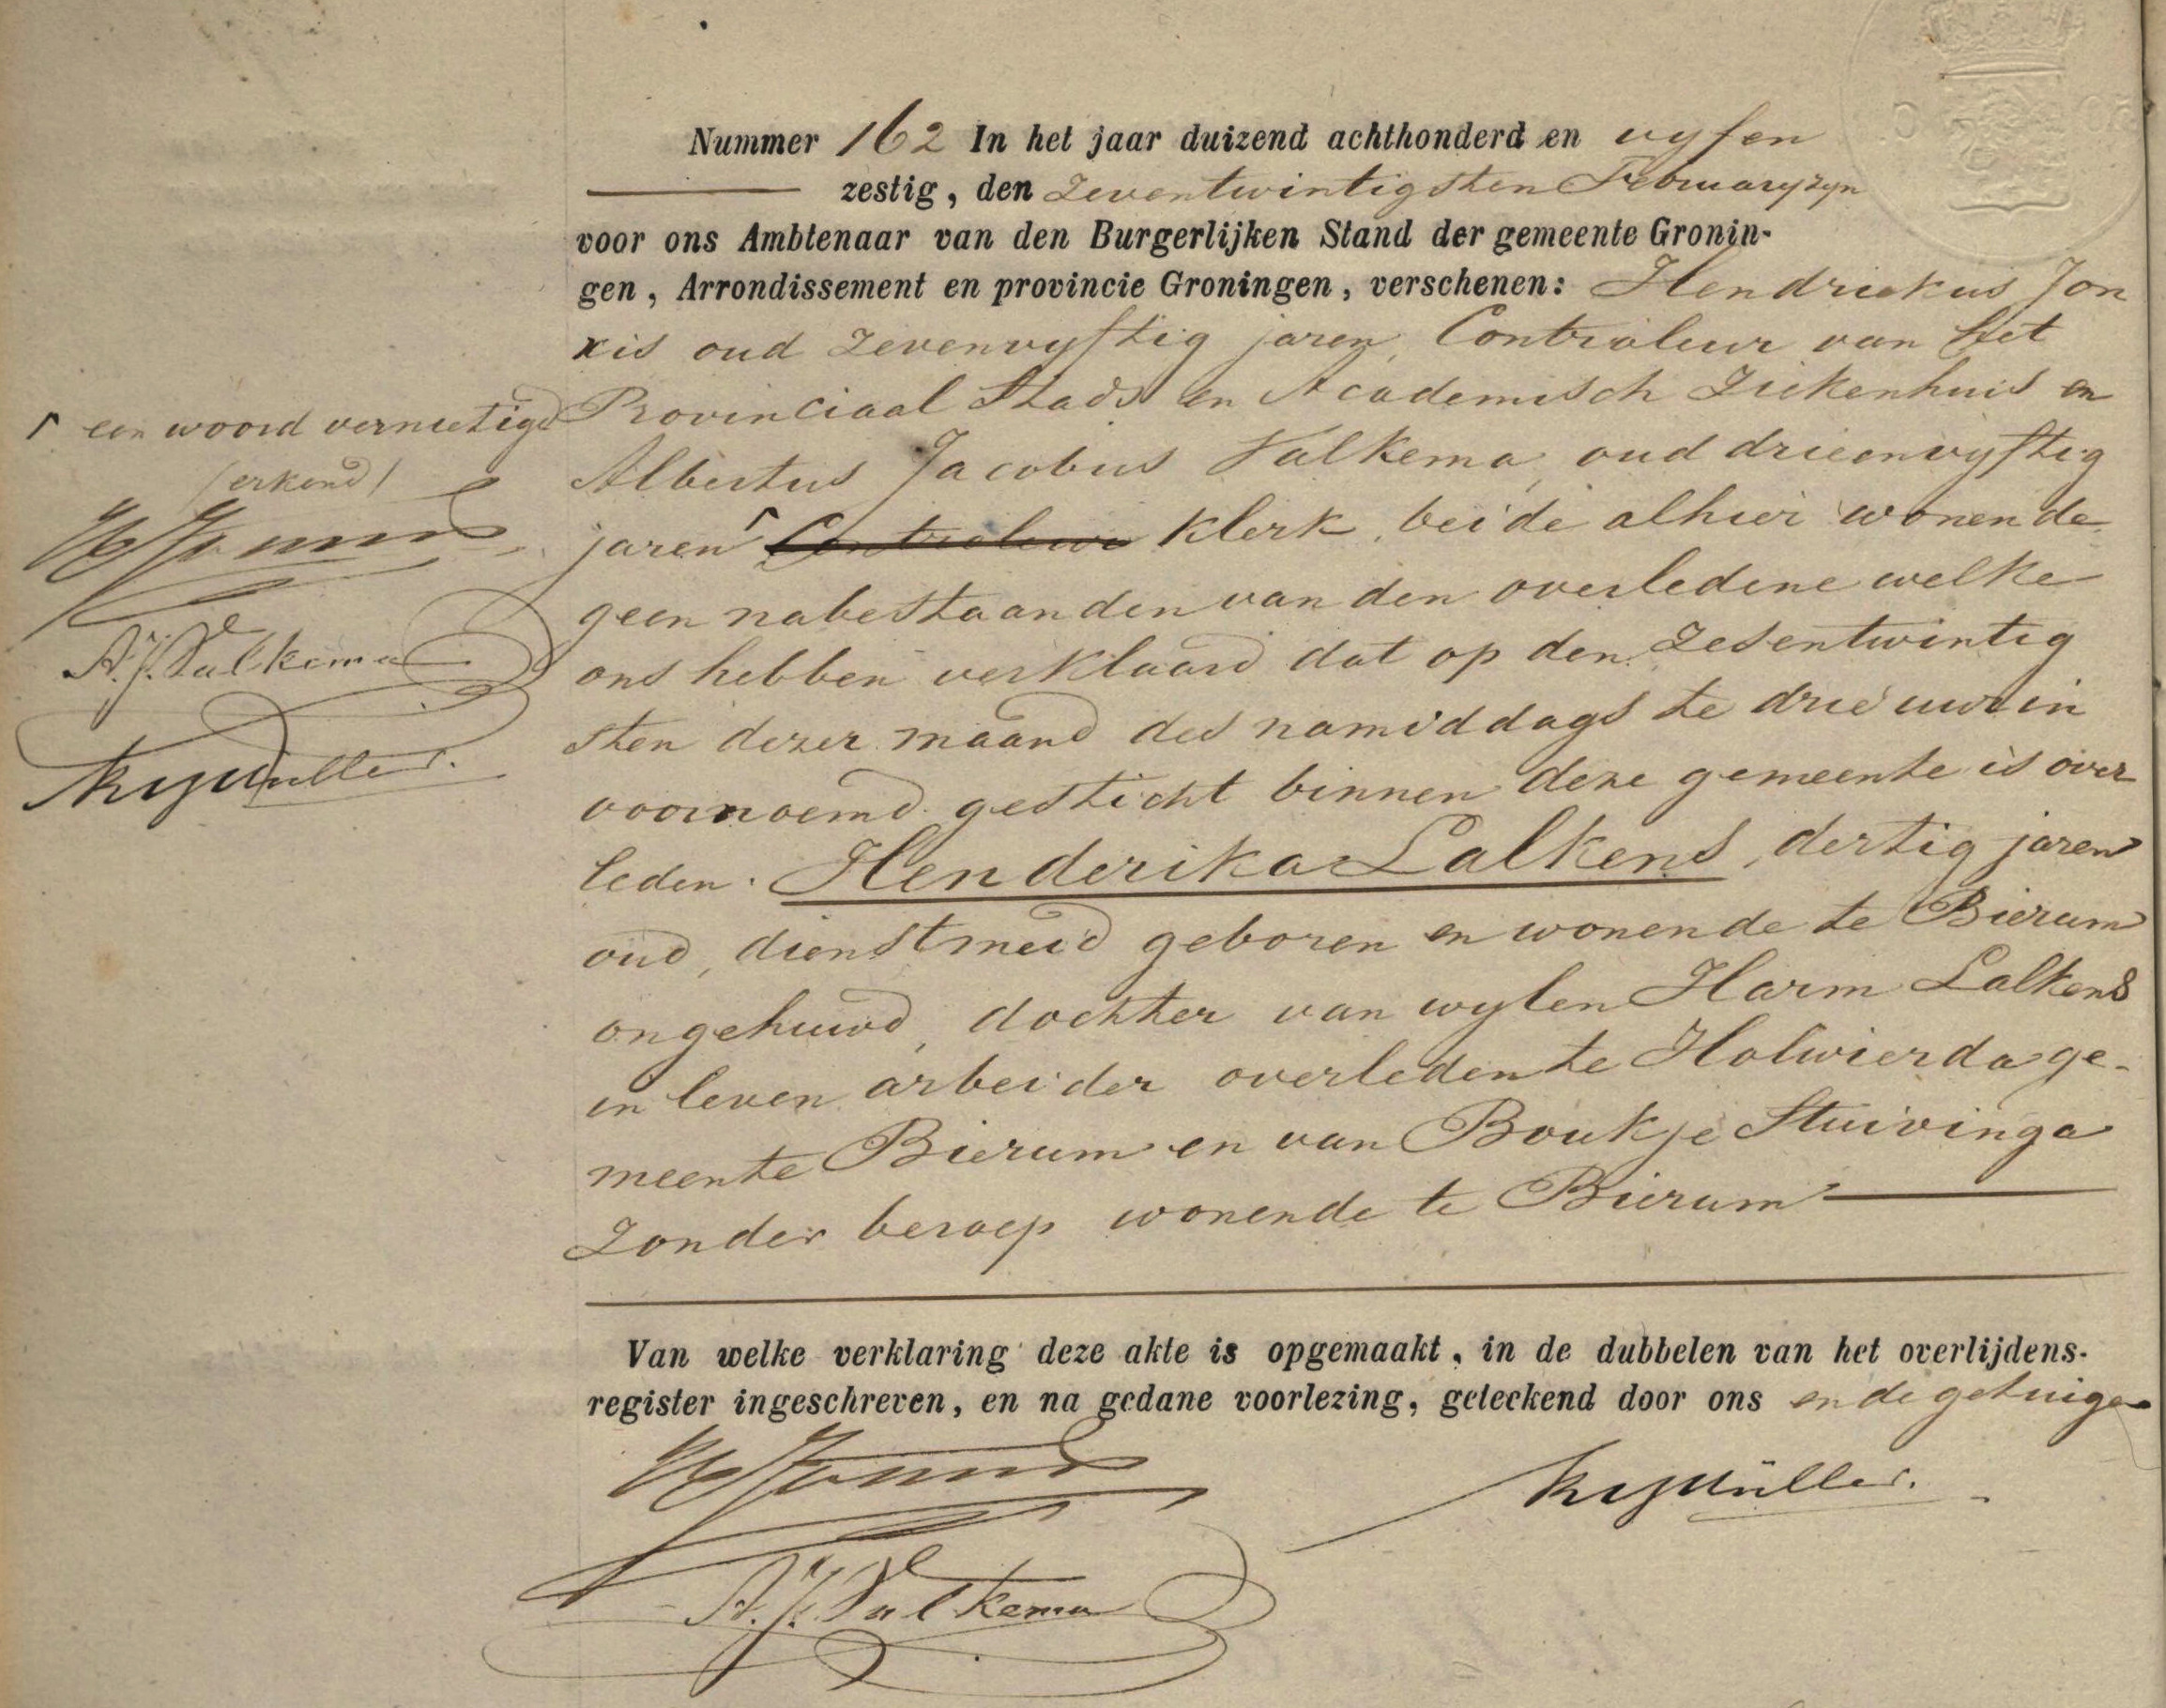 Nummer 162 In het jaar duizend achthonderd en vyfen
zestig, den Zeventwintigsten February zyn
voor ons Ambtenaar van den Burgerlijken Stand der gemeente Gronin-
gen, Arrondissement en provincie Groningen, verschenen: Hendriekus Jon
kis oud Zevenvyftig jaren, Controleur van het
Provinciaal Stads en Academisch Ziekenhuis en
Albertus Jacobus Valkema, oud drieenvyftig
jaren Controleur klerk, beide alhier wonende
geen nabestaanden van den overledene welke
ons hebben verklaard dat op den Zesentwintig
sten dezer maand des namiddags te drie uur in
voornoemd gesticht binnen deze gemeente is over
leden. Henderika Lalkens, dertig jaren
oud, dienstmeid geboren en wonende te Bierum
ongehuwd, dochter van wylen Harm Lalkens
in leven arbeider overleden te Holwierda ge-
meente Bierum en van Boukje Stuivinga
Zonder beroep wonende te Bierum
Van welke verklaring deze akte is opgemaakt, in de dubbelen van het overlijdens-
register ingeschreven, en na gedane voorlezing, geteekend door ons en de getuigen
Müller.
A.J. Valkema
een woord vernietigd
(erkend)
A.J. Valkema
Müller.